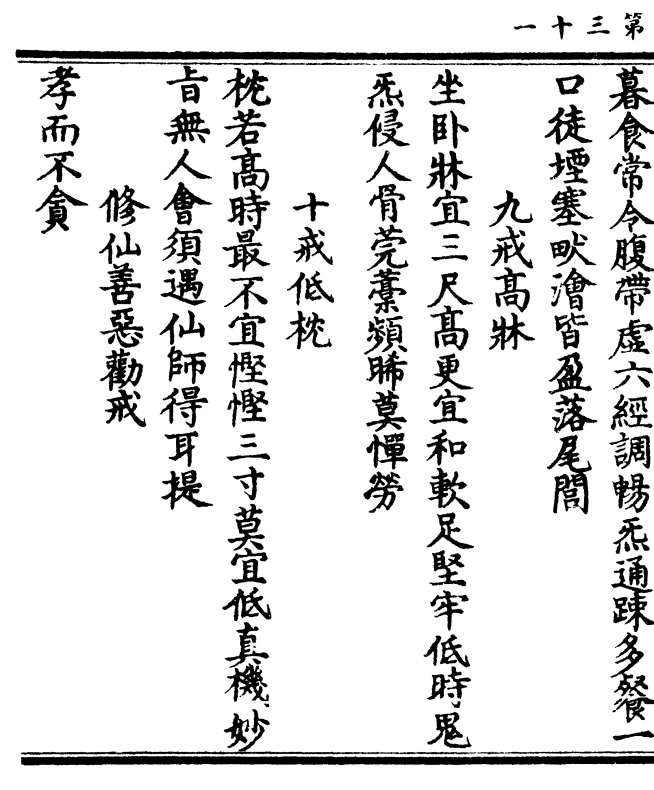 第三十一
暮食常令腹帶虛六經調暢炁通踈多餐一
口徒堙塞畎澮皆盈落尾閭
九戒高牀
坐卧牀宜三尺高更宜和軟足堅牢低時鬼
炁侵人骨莞藁頻晞莫憚勞
十戒低枕
枕若高時最不宜慳慳三寸莫宜低真機妙
旨無人會須遇仙師得耳提
修仙善惡勸戒
孝而不貪